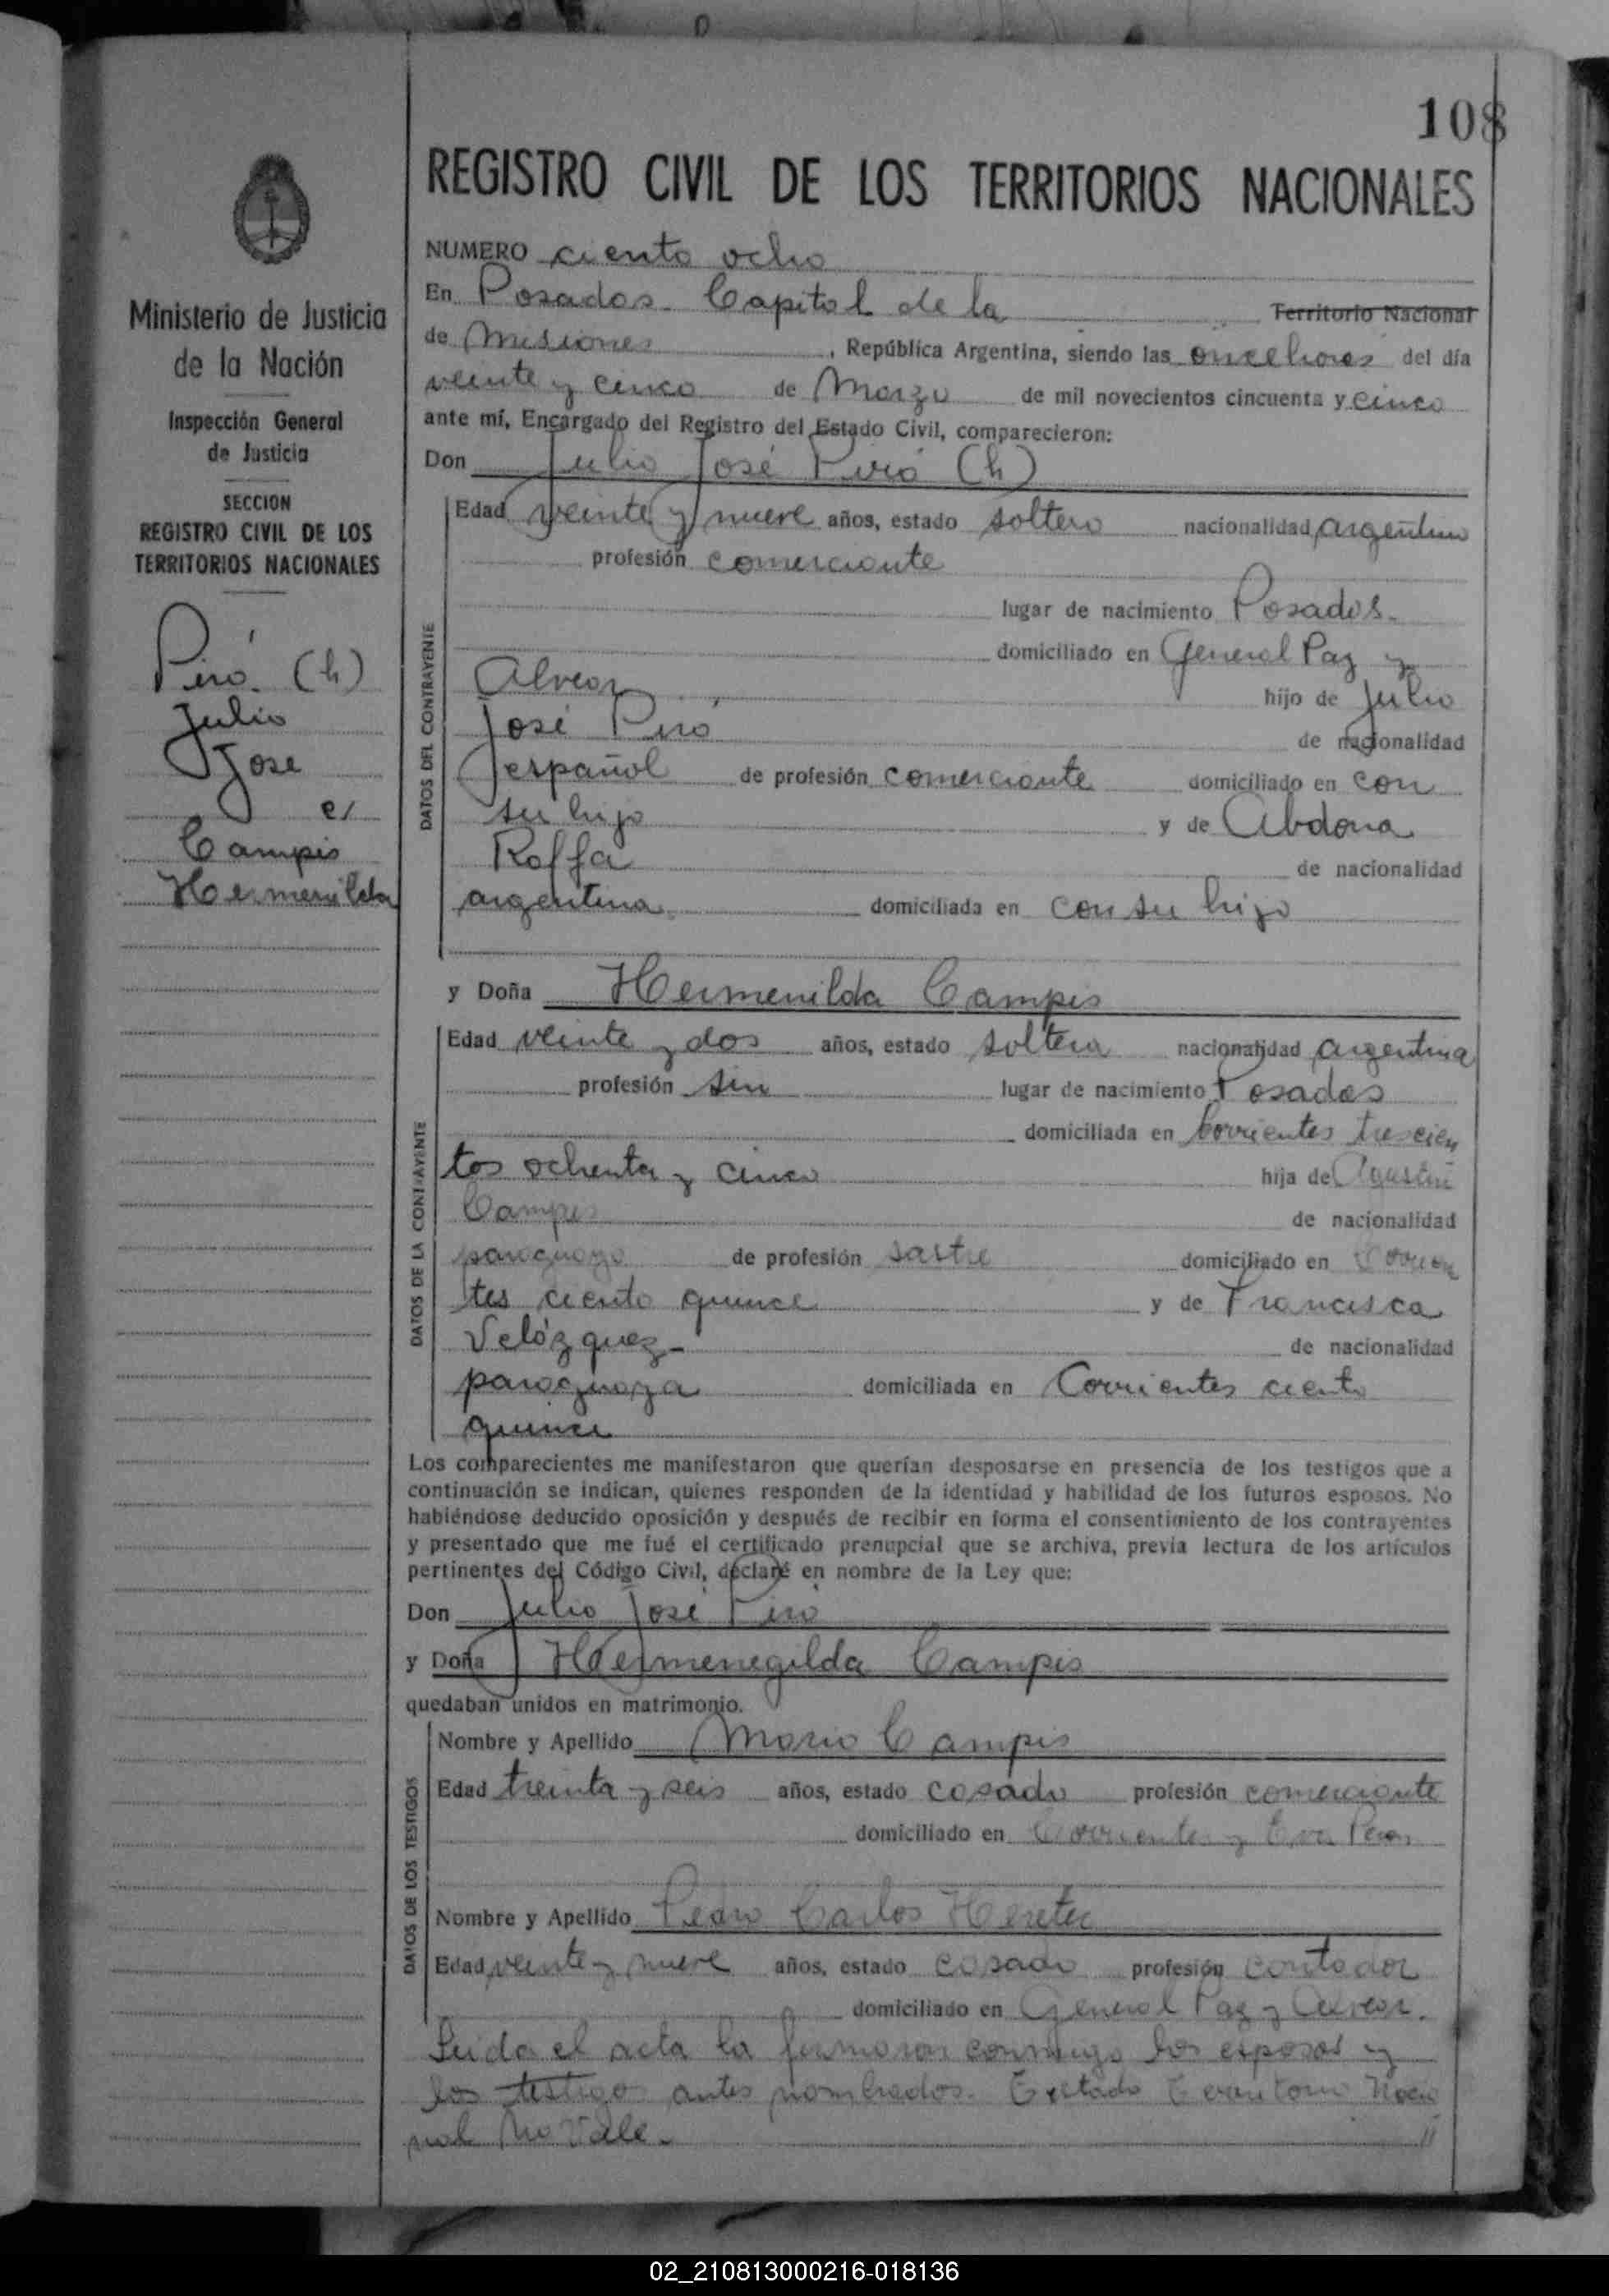 108
REGISTRO CIVIL DE LOS TERRITORIOS NACIONALES
Ministerio de Justicia
de la Nación
Inspección General
de Justicia
SECCION
REGISTRO CIVIL DE LOS
TERRITORIOS NACIONALES
Piró (h)
Julio
José
c/
Campis
Hermenilda
NUMERO ciento ocho
En Posadas Capital de la Territorio Nacional
de Misiones, República Argentina, siendo las once horas del día
veinte y cinco de Marzo de mil novecientos cincuenta y cinco
ante mí, Encargado del Registro del Estado Civil, comparecieron:
Don Julio José Piró (h)
DATOS DEL CONTRAYENTE
Edad veinte y nueve años, estado soltero nacionalidad argentino
profesión comerciante
lugar de nacimiento Posadas.
domiciliado en General Paz y
Alvear hijo de Julio
José Piró de nacionalidad
español de profesión comerciante domiciliado en con
su hijo y de Abdona
Roffa de nacionalidad
argentina domiciliada en con su hijo
y Doña Hermenilda Campis
DATOS DE LA CONTRAYENTE
Edad veinte y dos años, estado soltera nacionalidad argentina
profesión sin lugar de nacimiento Posadas
domiciliada en Corrientes trescien
tos ochenta y cinco hija de Agustín
Campis de nacionalidad
paraguayo de profesión sastre domiciliado en Corrien
tes ciento quince y de Francisca
Velázquez- de nacionalidad
paraguaya domiciliada en Corrientes ciento
quince
Los comparecientes me manifestaron que querían desposarse en presencia de los testigos que a
continuación se indican, quienes responden de la identidad y habilidad de los futuros esposos. No
habiéndose deducido oposición y después de recibir en forma el consentimiento de los contrayentes
y presentado que me fué el certificado prenupcial que se archiva, previa lectura de los artículos
pertinentes del Código Civil, declaré en nombre de la Ley que:
Don Julio José Piró
y Doña Hermenegilda Campis
quedaban unidos en matrimonio.
DATOS DE LOS TESTIGOS
Nombre y Apellido Mario Campis
Edad treinta y seis años, estado casado profesión comerciante
domiciliado en Corrientes y Eva Perón
Nombre y Apellido Pedro Carlos
Edad veinte y nueve años, estado casado profesión contador
domiciliado en General Paz y Alvear.
Leida el acta la firmaron conmigo los esposos y
los testigos antes nombrados. Testado Territorio Nacio
nal No Vale.
02_210813000216-018136